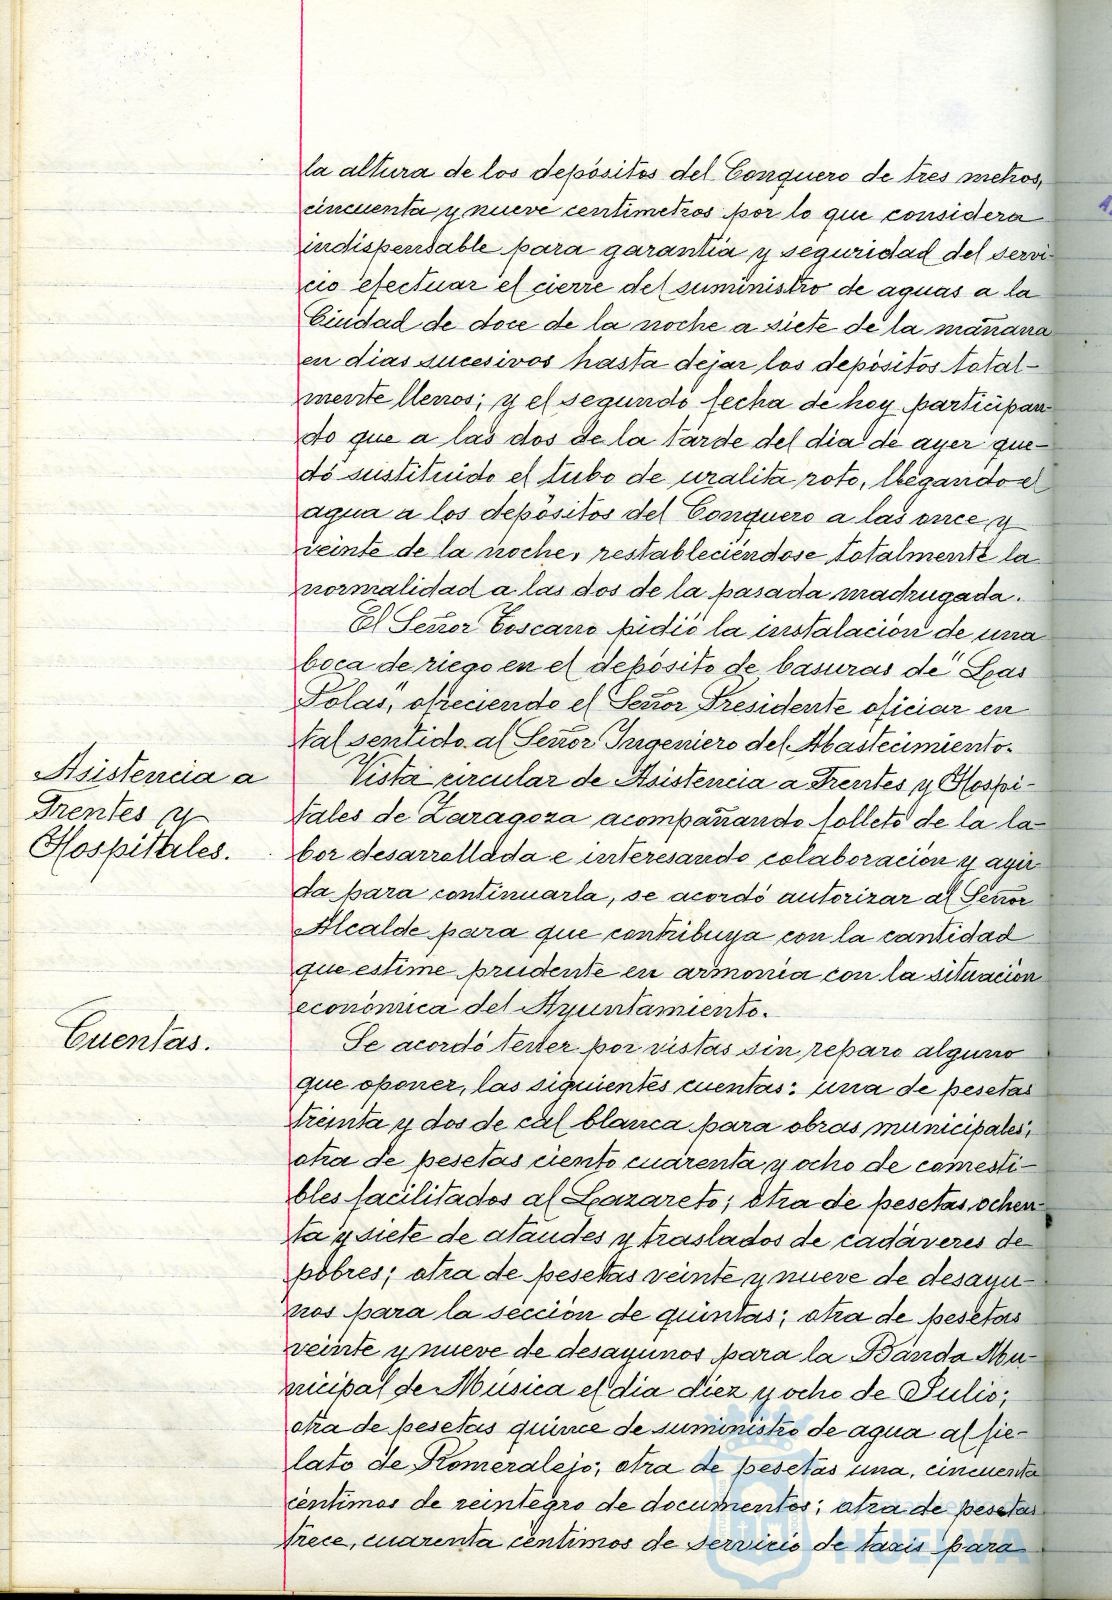 la altura de los depósitos del Conquero de tres metros,
cincuenta y nueve centimetros por lo que considera
indispensable para garantia y seguridad del servi-
cio efectuar el cierre del suministro de aguas a la
Ciudad de doce de la noche a siete de la mañana
en dias sucesivos hasta dejar los depósitos total-
mente llenos; y el segundo fecha de hoy participan-
do que a las dos de la tarde del dia de ayer que-
dó sustituido el tubo de uralita roto, llegando el
agua a los depósitos del Conquero a las once y
veinte de la noche, restableciéndose totalmente la
normalidad a las dos de la pasada madrugada.
El Señor Toscano pidió la instalación de una
boca de riego en el depósito de basuras de "Las
Polas", ofreciendo el Señor Presidente oficiar en
tal sentido al Señor Ingeniero del Abastecimiento.
Asistencia a
Frentes y
Hospitales.
Vista circular de Asistencia a Frentes y Hospi-
tales de Zaragoza acompañando folleto de la la-
bor desarrollada e interesando colaboración y ayu-
da para continuarla, se acordó autorizar al Señor
Alcalde para que contribuya con la cantidad
que estime prudente en armonia con la situación
económica del Ayuntamiento.
Cuentas.
Se acordó tener por vistas sin reparo alguno
que oponer, las siguientes cuentas: una de pesetas
treinta y dos de cal blanca para obras municipales;
otra de pesetas ciento cuarenta y ocho de comesti-
bles facilitados al Lazareto; otra de pesetas ochen-
ta y siete de ataudes y traslados de cadáveres de
pobres; otra de pesetas veinte y nueve de desayu-
nos para la sección de quintas; otra de pesetas
veinte y nueve de desayunos para la Banda Mu-
nicipal de Música el dia diez y ocho de Julio;
otra de pesetas quince de suministro de agua al fie-
lato de Romeralejo; otra de pesetas una, cincuenta
céntimos de reintegro de documentos; otra de pesetas
trece, cuarenta céntimos de servicio de taxis para
HUELVA